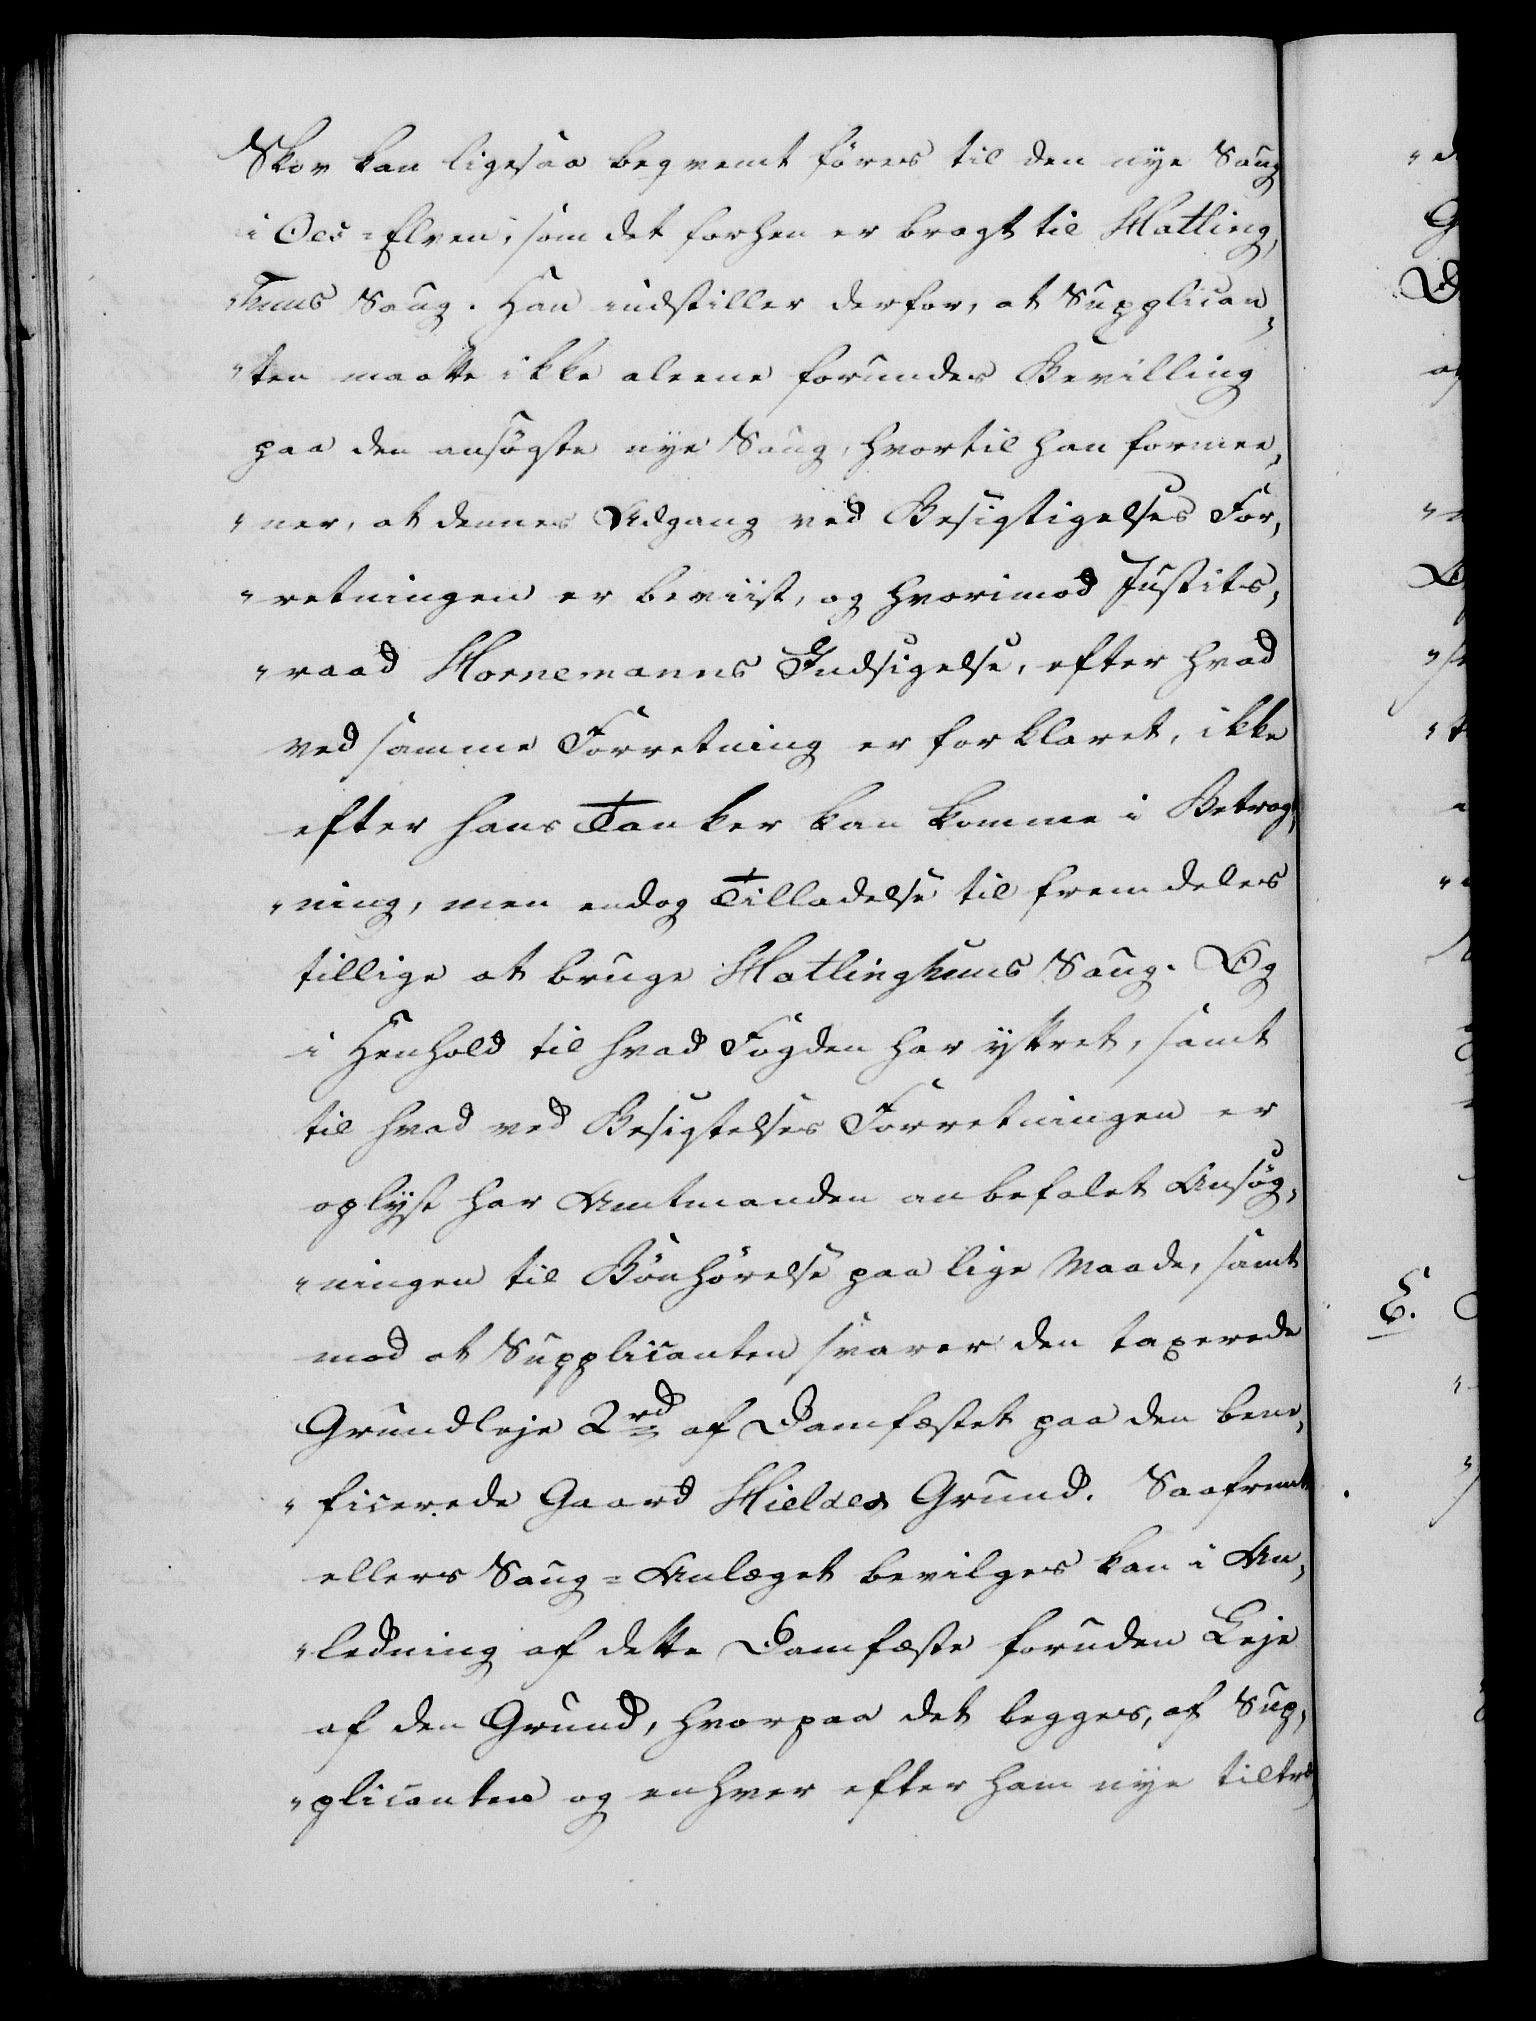 Skov kan ligesaa beqvemt föres til den nye Saug
i Oes=Elven, som det forhen er bragt til Hatling,
"huus Saug. Han indstiller derfor, at Supplican,
"ten maatte ikke alene forundes Bevilling
paa den ansögte nye Saug, hvortil han formee,
"ner, at dennes Adgang ved Besigtigelses For,
"retningen er beviist, og hvorimod Justits,
"raad Hornemanns Indsigelse, efter hvad
ved samme Forretning er forklaret, ikke
efter hans Tanker kan komme i Betragt,
"ning, men endog Tilladelse til fremdeles
tillige at bruge Hatlinghuus Saug. Og
i Henhold til hvad Fogden har yttret, samt
til hvad ved Besigtelses Forretningen er
oplyst har Amtmanden anbefalet Ansög,
"ningen til Bönhörelse paa lige Maade, samt
mod at Supplicanten svarer den taxerede
Grundleje 2 rd af Damfæstet paa den bene,
"ficerede Gaard Hieldes Grund. Saafremt
ellers Saug=Anlæget bevilges kan i An,
"ledning af dette Damfæste foruden Leje
af den Grund, hvorpaa det legges, af Sup,
"plicanten og enhver efter ham nye tiltræ,
E.